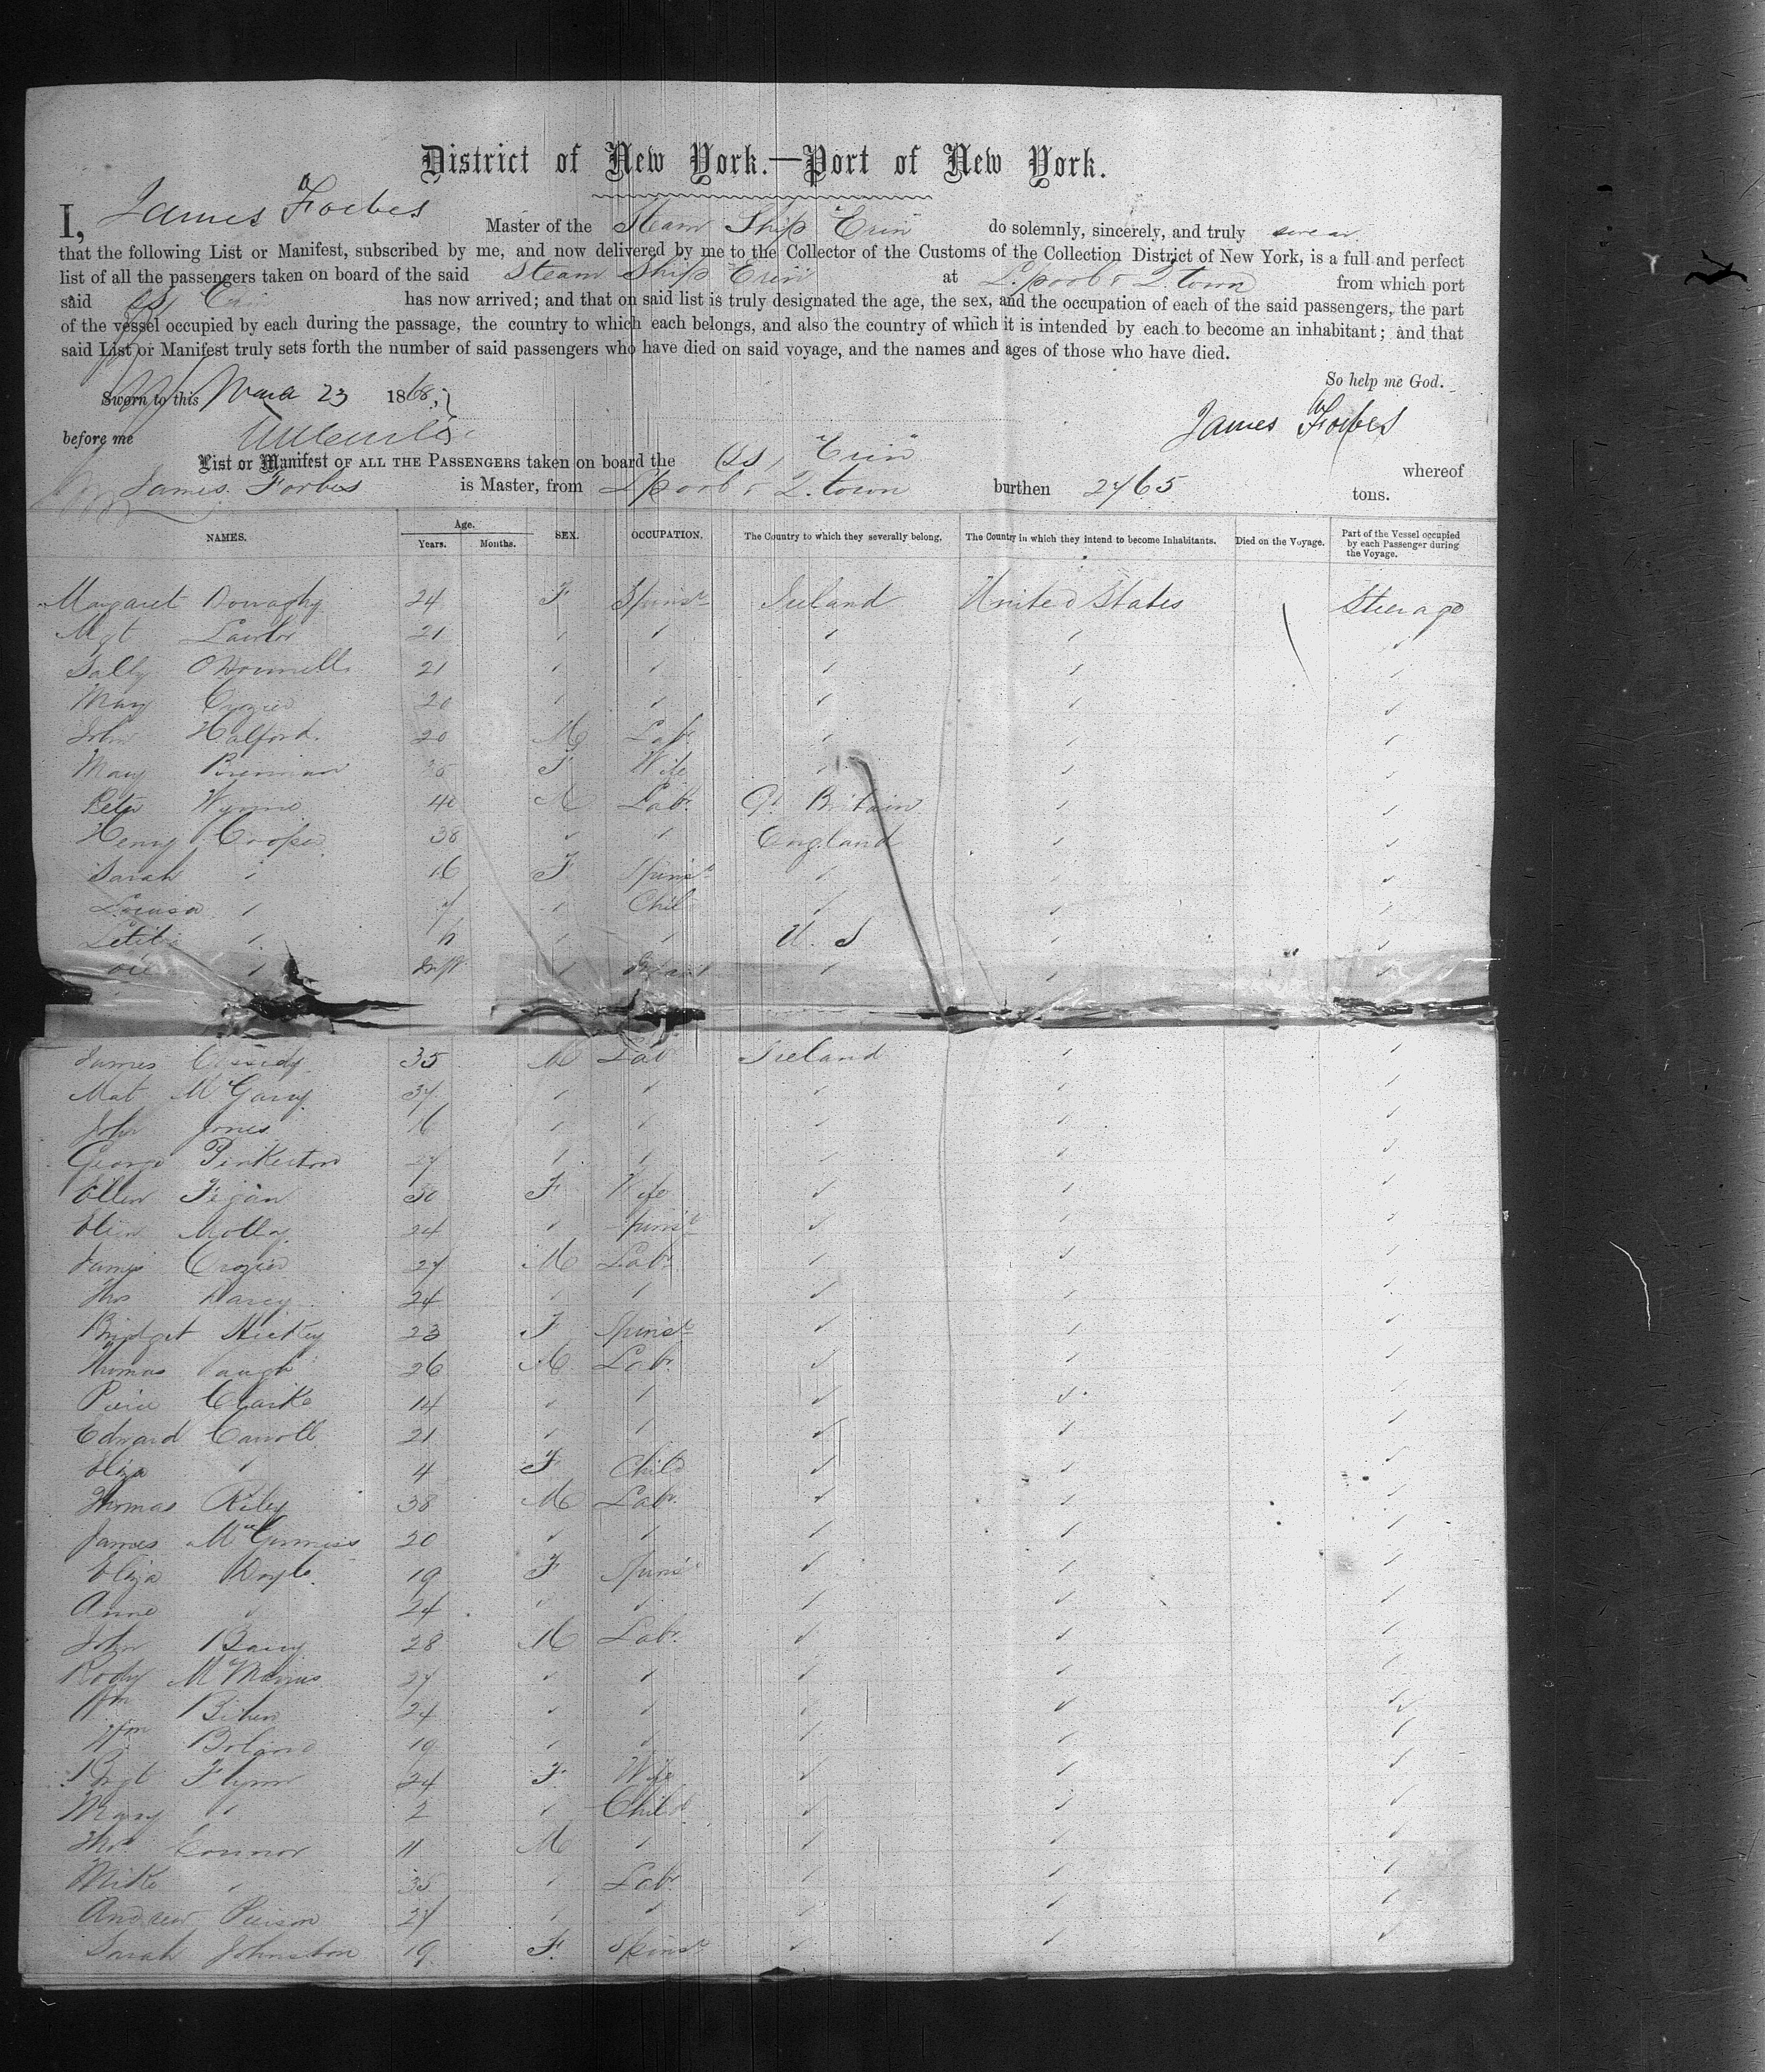 District of New York.—Port of New York.
I, James Forbes Master of the Steam Ship "Erin" do solemnly, sincerely, and truly swear
that the following List or Manifest, subscribed by me, and now delivered by me to the Collector of the Customs of the Collection District of New York, is a full and perfect
list of all the passengers taken on board of the said Steam Ship "Erin" at L.pool & Q.town from which port
said SS Erin has now arrived; and that on said list is truly designated the age, the sex, and the occupation of each of the said passengers, the part
of the vessel occupied by each during the passage, the country to which each belongs, and also the country of which it is intended by each to become an inhabitant; and that
said List or Manifest truly sets forth the number of said passengers who have died on said voyage, and the names and ages of those who have died.
So help me God.
Sworn to this 23 1868,
James Forbes
before me
List or Manifest OF ALL THE PASSENGERS taken on board the (SS) "Erin" whereof
James Forbes is Master, from Lpool & Q.town burthen 2465 tons.
NAMES. Age. Years. Months. SEX. OCCUPATION. The Country to which they severally belong. The Country in which they intend to become Inhabitants. Died on the Voyage. Part of the Vessel occupied by each Passenger during the Voyage.
Margaret Donaghy 24 F Spinst Ireland United States Steerage
Mgt Lawlor 21 " " " " "
Sally O'Donnell 21 " " " " "
Mary Crozier 20 " " " " "
John Halford 20 M Labr " " "
Mary Brennan F Wife " " "
Peter Wynne 40 M Labr Gt Britain " "
Henry Cooper 38 " " England " "
Sarah " 16 F Spinst " " "
Louisa " 7 " Chil " " "
Letitia " " " U.S " "
" Inft " Infant " " "
James Cassidy 35 M Labr Ireland " "
Mat McGarry 37 " " " " "
John Jones 16 " " " " "
George Pinkerton 27 " " " " "
Ellen Fegan 30 F Wife " " "
Ellen Molloy 24 " Spinst " " "
James Crozier 27 M Labr " " "
Thos Darcy 24 " " " " "
Bridget Hickey 23 F Spinst " " "
Thomas 26 M Labr " " "
Pierce Clarke 14 " " " " "
Edward Carroll 21 " " " " "
Eliza " 4 F Child " " "
Thomas Riley 38 M Labr " " "
James McGinniss 20 " " " " "
Eliza Doyle 19 F Spinst " " "
Anne " 24 " " " " "
John Barry 28 M Labr " " "
Rody McManus 27 " " " " "
Wm 24 " " " " "
Wm Boland 19 " " " " "
Bgt Flynn 24 F Wife " " "
Mary " 2 " Child " " "
Thos Connor 11 M " " " "
Mike " 35 " Labr " " "
Andrew Pierson 27 " " " " "
Sarah Johnston 19 F Spinst " " "